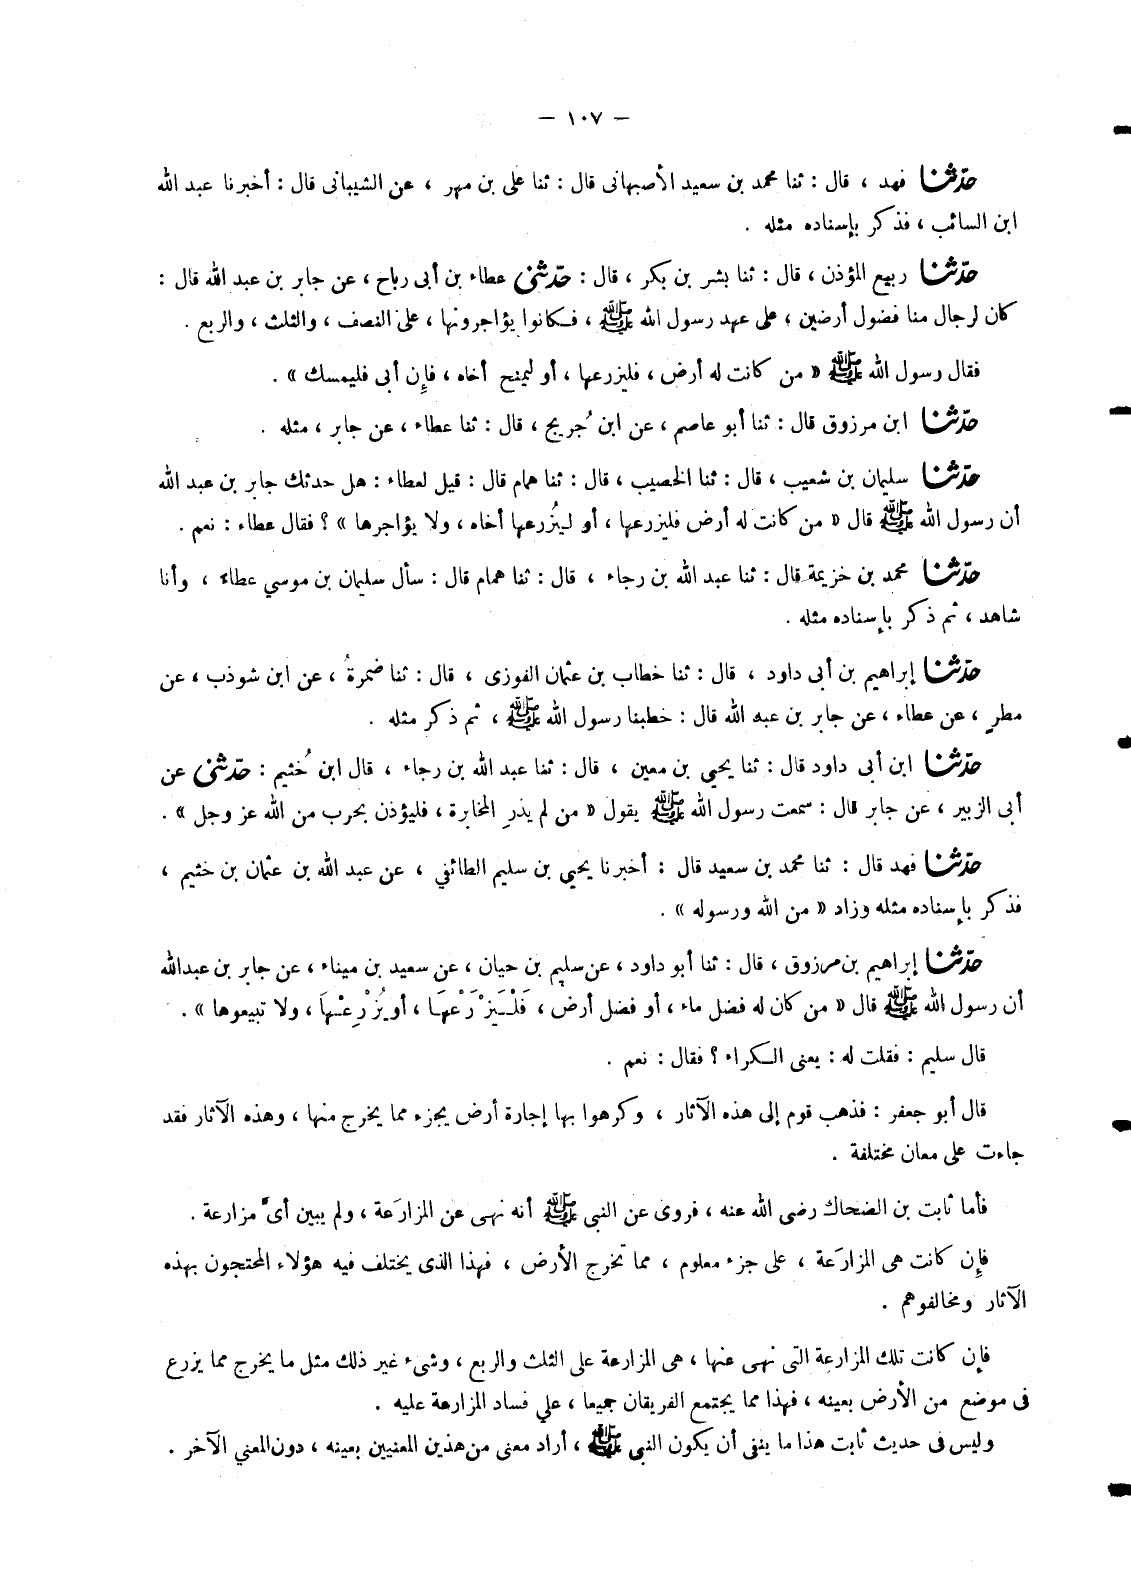 — ١٠٧ —
حدّثنا فهد ، قال : ثنا محمد بن سعيد الأصبهانى قال : ثنا على بن مهر ، عن الشيبانى قال : أخبرنا عبد الله
ابن السائب ، فذكر بإسناده مثله .
حدّثنا ربيع المؤذن ، قال : ثنا بشر بن بكر ، قال : حدّثنى عطاء بن أبى رباح ، عن جابر بن عبد الله قال :
كان لرجال منا فضول أرضين ، على عهد رسول الله ﷺ ، فكانوا يؤاجرونها ، على النصف ، والثلث ، والربع .
فقال رسول الله ﷺ « من كانت له أرض ، فليزرعها ، أو ليمنح أخاه ، فإن أبى فليمسك » .
حدّثنا ابن مرزوق قال : ثنا أبو عاصم ، عن ابن جُريج ، قال : ثنا عطاء ، عن جابر ، مثله .
حدّثنا سليمان بن شعيب ، قال : ثنا الخصيب ، قال : ثنا همام قال : قيل لعطاء : هل حدثك جابر بن عبد الله
أن رسول الله ﷺ قال « من كانت له أرض فليزرعها ، أو ليُزرعها أخاه ، ولا يؤاجرها » ؟ فقال عطاء : نعم .
حدّثنا محمد بن خزيمة قال : ثنا عبد الله بن رجاء ، قال : ثنا همام قال : سأل سليمان بن موسي عطاء ، وأنا
شاهد ، ثم ذكر بإسناده مثله .
حدّثنا إبراهيم بن أبى داود ، قال : ثنا خطاب بن عثمان الفوزى ، قال : ثنا ضمرةُ ، عن ابن شوذب ، عن
مطرٍ ، عن عطاء ، عن جابر بن عبد الله قال : خطبنا رسول الله ﷺ ، ثم ذكر مثله .
حدّثنا ابن أبى داود قال : ثنا يحيي بن معين ، قال : ثنا عبد الله بن رجاء ، قال ابن خُثيم : حدّثنى عن
أبى الزبير ، عن جابر قال : سمعت رسول الله ﷺ يقول « من لم يذرِ المخابرة ، فليؤذن بحرب من الله عز وجل » .
حدّثنا فهد قال : ثنا محمد بن سعيد قال : أخبرنا يحيي بن سليم الطائفي ، عن عبد الله بن عثمان بن خثيم ،
فذكر بإسناده مثله وزاد « من الله ورسوله » .
حدّثنا إبراهيم بن مرزوق ، قال : ثنا أبو داود ، عن سليم بن حيان ، عن سعيد بن ميناء ، عن جابر بن عبدالله
أن رسول الله ﷺ قال « من كان له فضل ماء ، أو فضل أرض ، فَلْيَزْرَعْهَا ، أويُزْرِعْهَا ، ولا تبيعوها » .
قال سليم : فقلت له : يعنى الكراء ؟ فقال : نعم .
قال أبو جعفر : فذهب قوم إلى هذه الآثار ، وكرهوا بها إجارة أرض يجزء مما يخرج منها ، وهذه الآثار فقد
جاءت على معان مختلفة .
فأما ثابت بن الضحاك رضى الله عنه ، فروى عن النبي ﷺ أنه نهى عن المزارَعة ، ولم يبين أىّ مزارعة .
فإن كانت هى المزارَعة ، على جزء معلوم ، مما تخرج الأرض ، فهذا الذى يختلف فيه هؤلاء المحتجون بهذه
الآثار ومخالفوهم .
فإن كانت تلك المزارعة التى نهى عنها ، هى المزارعة على الثلث والربع ، وشىء غير ذلك مثل ما يخرج مما يزرع
فى موضع من الأرض بعينه ، فهذا مما يجتمع الفريقان جميعا ، علي فساد المزارعة عليه .
وليس فى حديث ثابت هذا ما ينفى أن يكون النبى ﷺ ، أراد معنى من هذين المعنيين بعينه ، دون المعني الآخر .